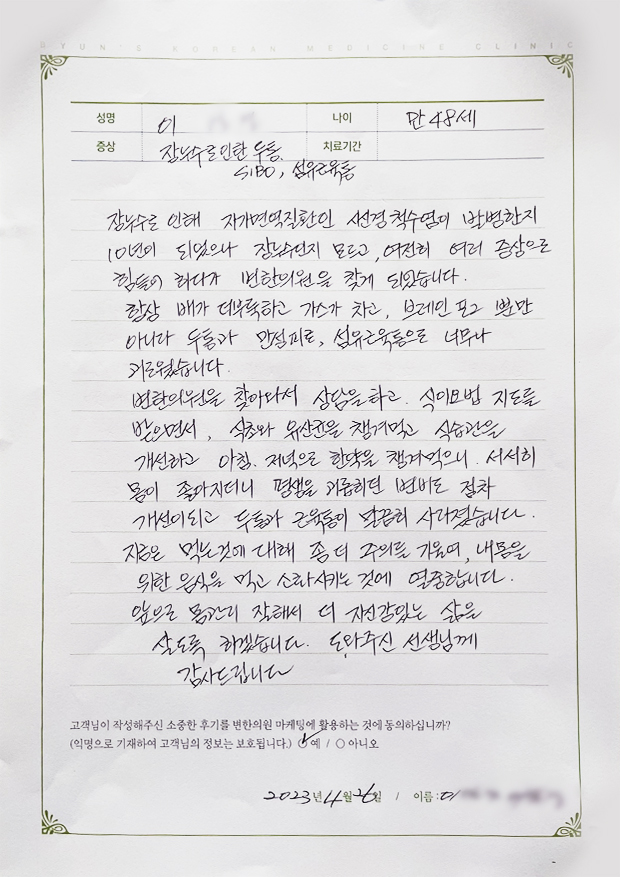 BYUN'S KOREAN MEDICINE CLINIC
성명 이 나이 만 48세
증상 장누수로인한 두통, 치료기간
SIBO, 섬유근육통
장누수로 인해 자가면역질환인 시신경척수염이 발병한지
10년이 되었으나 장누수인지 모르고, 여전히 여러 증상으로
힘들어 하다가 변한의원을 찾게 되었습니다.
항상 배가 더부룩하고 가스가 차고, 브레인 포그 뿐만
아니라 두통과 만성피로, 섬유근육통으로 너무나
괴로웠습니다.
변한의원을 찾아와서 상담을 하고. 식이요법 지도를
받으면서, 식초와 유산균을 챙겨먹고 식습관을
개선하고 아침. 저녁으로 한약을 챙겨먹으니. 서서히
몸이 좋아지더니 평생을 괴롭히던 변비도 점차
개선이되고 두통과 근육통이 말끔히 사라졌습니다.
지금은 먹는것에 대해 좀 더 주의를 기울여, 내몸을
위한 음식을 먹고 소화시키는 것에 열중합니다.
앞으로 몸관리 잘해서 더 자신감있는 삶을
살도록 하겠습니다. 도와주신 선생님께
감사드립니다
고객님이 작성해주신 소중한 후기를 변한의원 마케팅에 활용하는 것에 동의하십니까?
(익명으로 기재하여 고객님의 정보는 보호됩니다.) ○ 예 / ○ 아니오
2023년 4월 26일 / 이름: 이